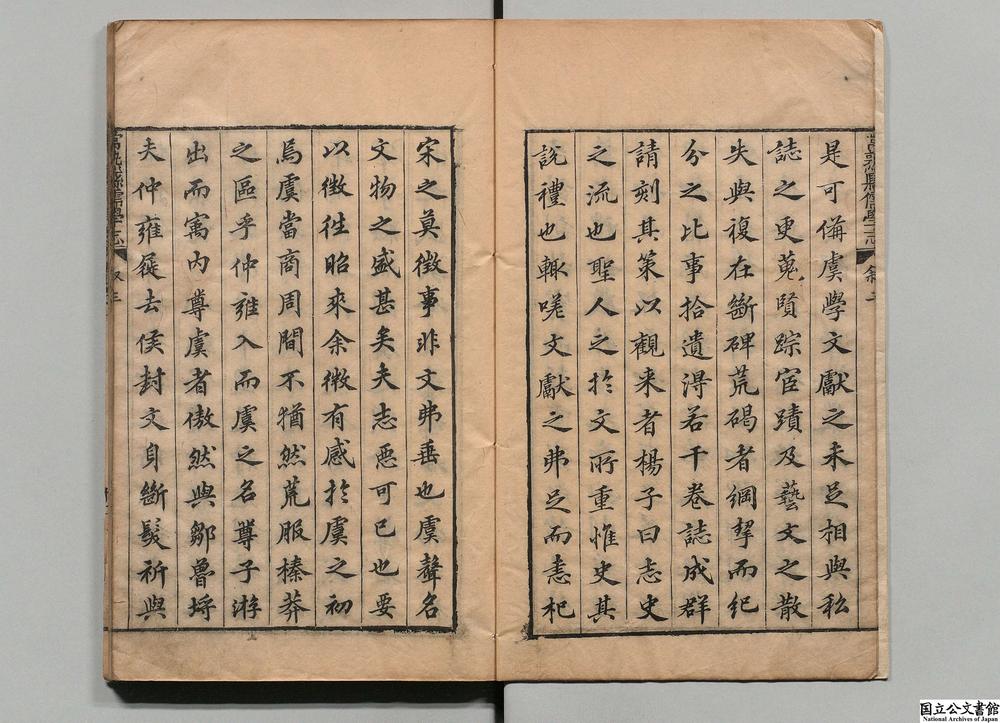 是可備虞學文獻之未足相與私
誌之更蒐賢踪宦蹟及藝文之散
失與複在斷碑荒碣者綱挈而紀
分之比事拾遺得若干卷誌成群
請刻其策以觀来者楊子曰志史
之流也聖人之扵文所重惟史其
說禮也輙嗟文獻之弗足而恚杞
宋之莫徴事非文弗垂也虞聲名
文物之盛甚矣夫志惡可已也要
以徴徃昭來余徴有感扵虞之初
焉虞當商周間不猶然荒服榛莽
之區乎仲雍入而虞之名尊子游
出而寓内尊虞者傲然與鄒魯埒
夫仲雍從去侯封文自斷髮祈與
常熟縣儒學志
叙三
国立公文書館
National Archives of Japan